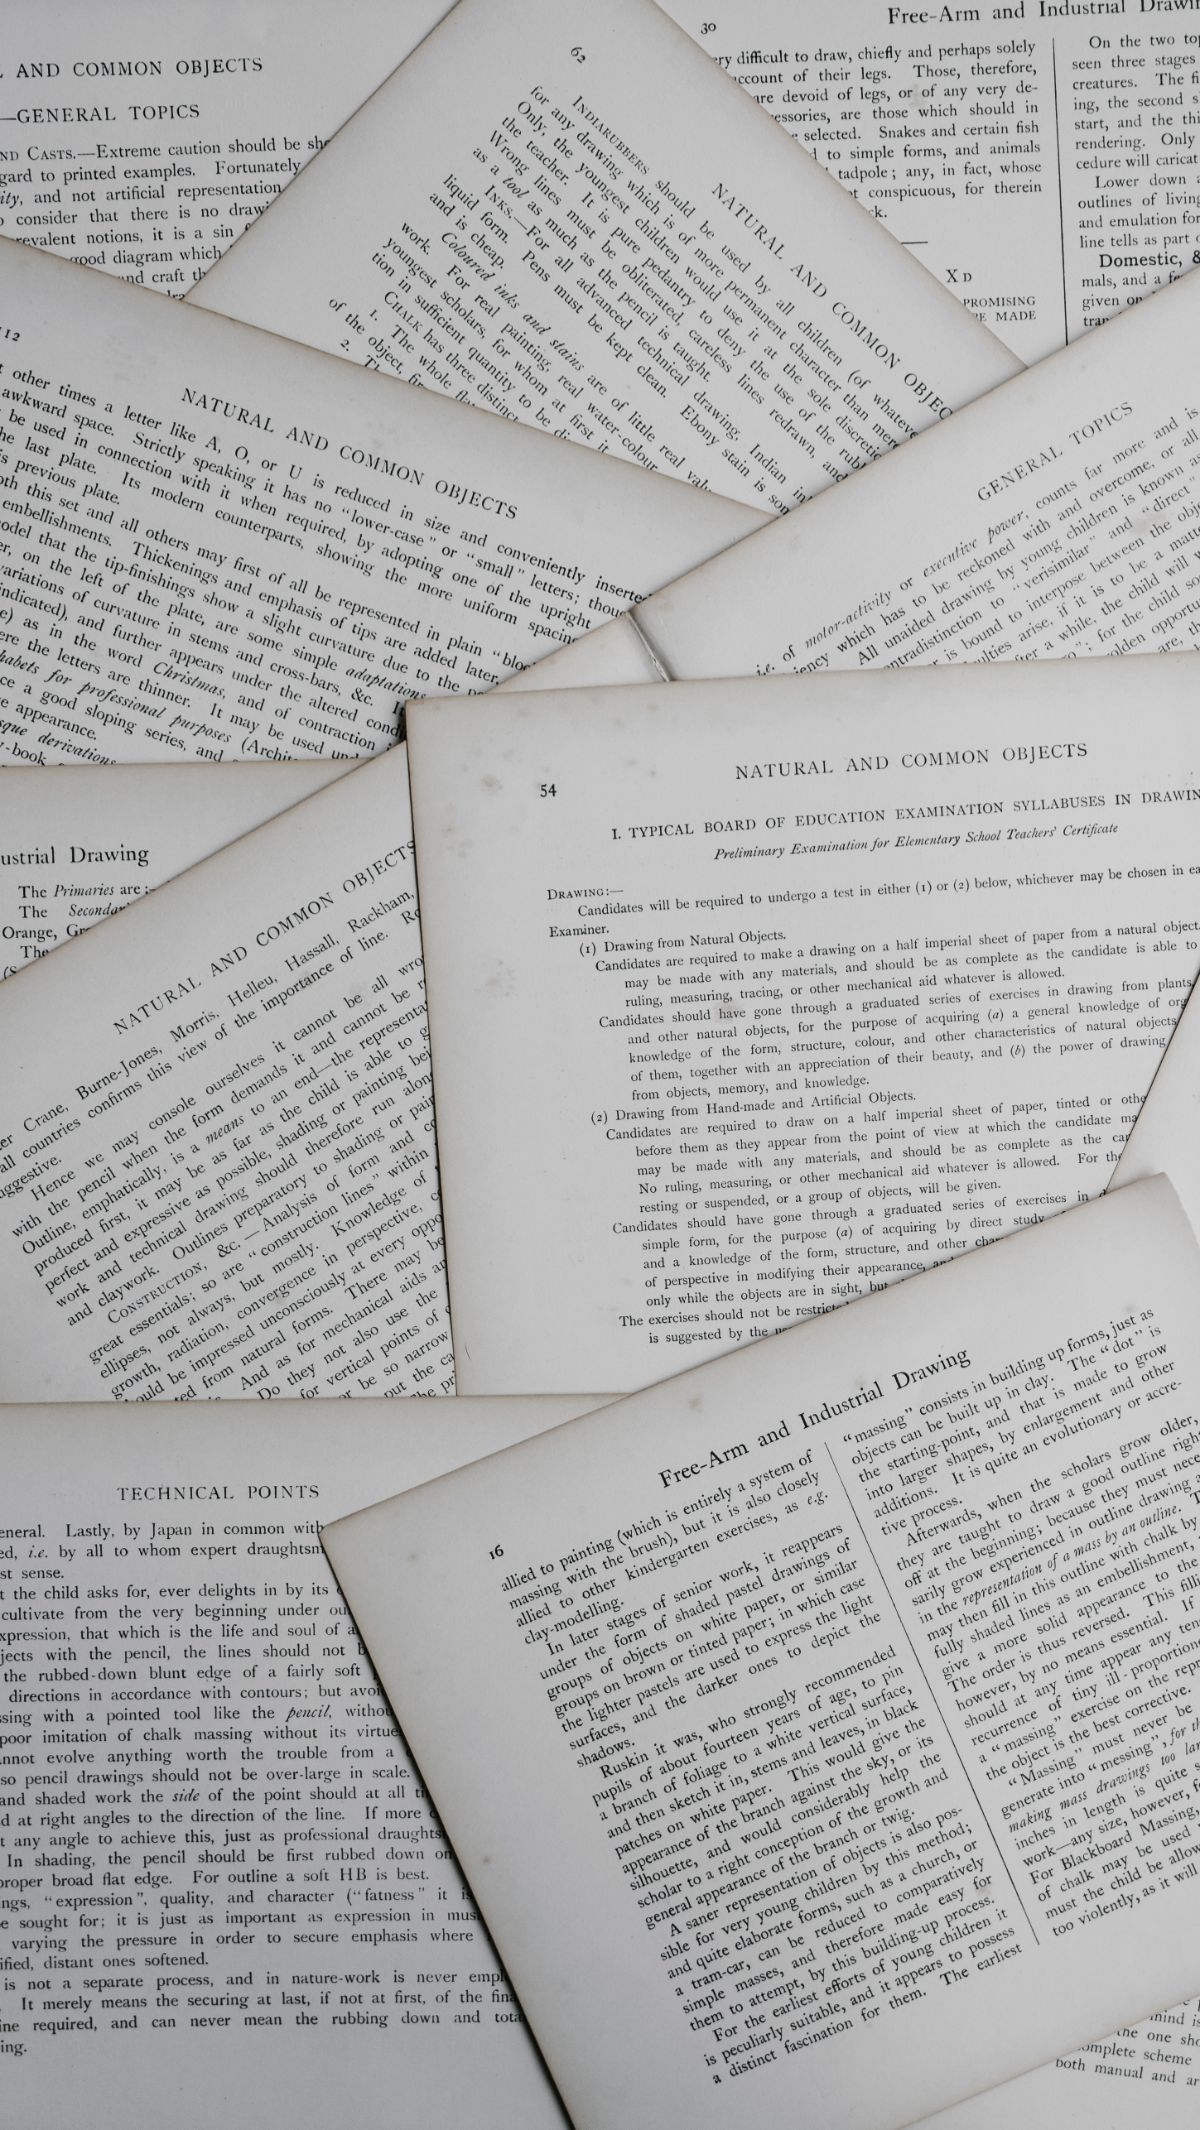 AND COMMON OBJECTS
—GENERAL TOPICS
CASTS.—Extreme caution should be
to printed examples. Fortunately
and not artificial representation
consider that there is no
notions, it is a sin
good diagram which
and craft
62
NATURAL AND COMMON
INDIARUBBERS should be used by all children (of
for any drawing which is of more permanent character than
Only the youngest children would use it at the sole
the teacher. It is pure pedantry to deny the use of the
Wrong lines must be obliterated, careless lines redrawn, and
as a tool as much as the pencil is taught.
INKS.—For all advanced technical drawing, Indian
liquid form. Pens must be kept clean. Ebony stain is
and is cheap.
Coloured inks and stains are of little real
work. For real painting, real water-colour
youngest scholars, for whom at first it
in sufficient quantity to be
CHALK has three distinct
1. The whole
of the object,
2.
30
Free-Arm and Industrial
difficult to draw, chiefly and perhaps solely
account of their legs. Those, therefore,
are devoid of legs, or of any very de-
are those which should in
selected. Snakes and certain fish
to simple forms, and animals
tadpole; any, in fact, whose
conspicuous, for therein
XD
PROMISING
MADE
On the two
seen three stages
creatures. The
ing, the second
start, and the
rendering. Only
cedure will
Lower down
outlines of
and emulation for
line tells as part
Domestic, &
mals, and a
given on
112
NATURAL AND COMMON OBJECTS
other times a letter like A, O, or U is reduced in size and conveniently
awkward space. Strictly speaking it has no “lower-case” or “small” letters;
be used in connection with it when required, by adopting one of the upright
last plate. Its modern counterparts, showing the more uniform
previous plate.
this set and all others may first of all be represented in plain
embellishments. Thickenings and emphasis of tips are added later,
that the tip-finishings show a slight curvature due to the
on the left of the plate, are some simple adaptations
variations of curvature in stems and cross-bars, &c.
indicated), and further appears under the altered
as in the word Christmas, and of contraction
the letters are thinner. It may be used
for professional purposes
a good sloping series, and
appearance.
derivations
GENERAL TOPICS
i.e. of motor-activity or executive power, counts far more and is
which has to be reckoned with and overcome, or all
All unaided drawing by young children is known as
to “verisimilar” and “direct”
is bound to interpose between the
arise, if it is to be a
a while, the child will
for the child
opportu
NATURAL AND COMMON OBJECTS
Crane, Burne-Jones, Morris, Helleu, Hassall, Rackham,
all countries confirms this view of the importance of line.
Hence we may console ourselves it cannot be all
with the pencil when the form demands it and cannot be
Outline, emphatically, is a means to an end—the
produced first, it may be as far as the child is able to
perfect and expressive as possible, shading or painting
work and technical drawing should therefore run
and claywork. Outlines preparatory to shading or
CONSTRUCTION, &c.—Analysis of form and
great essentials; so are “construction lines” within
ellipses, not always, but mostly. Knowledge of
growth, radiation, convergence in perspective,
be impressed unconsciously at every
from natural forms. There may be
And as for mechanical aids
Do they not also use the
for vertical points of
be so narrow
Drawing
The Primaries are:—
The
Orange,
The
54
NATURAL AND COMMON OBJECTS
I. TYPICAL BOARD OF EDUCATION EXAMINATION SYLLABUSES IN
Preliminary Examination for Elementary School Teachers’ Certificate
DRAWING:—
Candidates will be required to undergo a test in either (1) or (2) below, whichever may be chosen in
Examiner.
(1) Drawing from Natural Objects.
Candidates are required to make a drawing on a half imperial sheet of paper from a natural object.
may be made with any materials, and should be as complete as the candidate is able to
ruling, measuring, tracing, or other mechanical aid whatever is allowed.
Candidates should have gone through a graduated series of exercises in drawing from plants
and other natural objects, for the purpose of acquiring (a) a general knowledge of
knowledge of the form, structure, colour, and other characteristics of natural objects
of them, together with an appreciation of their beauty, and (b) the power of drawing
from objects, memory, and knowledge.
(2) Drawing from Hand-made and Artificial Objects.
Candidates are required to draw on a half imperial sheet of paper, tinted or
before them as they appear from the point of view at which the candidate
may be made with any materials, and should be as complete as the
No ruling, measuring, or other mechanical aid whatever is allowed. For
resting or suspended, or a group of objects, will be given.
Candidates should have gone through a graduated series of exercises in
simple form, for the purpose (a) of acquiring by direct study
and a knowledge of the form, structure, and other
of perspective in modifying their appearance,
only while the objects are in sight, but
The exercises should not be
is suggested by the
TECHNICAL POINTS
Lastly, by Japan in common with
i.e. by all to whom expert
sense.
the child asks for, ever delights in by its
cultivate from the very beginning under
that which is the life and soul of
with the pencil, the lines should not
the rubbed-down blunt edge of a fairly soft
directions in accordance with contours; but
with a pointed tool like the pencil,
poor imitation of chalk massing without its
evolve anything worth the trouble from a
so pencil drawings should not be over-large in scale.
and shaded work the side of the point should at all
at right angles to the direction of the line. If more
any angle to achieve this, just as professional
In shading, the pencil should be first rubbed down
proper broad flat edge. For outline a soft HB is best.
“expression”, quality, and character (“fatness” it
sought for; it is just as important as expression in
varying the pressure in order to secure emphasis where
distant ones softened.
is not a separate process, and in nature-work is never
It merely means the securing at last, if not at first, of the
required, and can never mean the rubbing down and
16
Free-Arm and Industrial Drawing
allied to painting (which is entirely a system of
massing with the brush), but it is also closely
allied to other kindergarten exercises, as e.g.
clay-modelling.
In later stages of senior work, it reappears
under the form of shaded pastel drawings of
groups of objects on white paper, or similar
groups on brown or tinted paper; in which case
the lighter pastels are used to express the light
surfaces, and the darker ones to depict the
shadows.
Ruskin it was, who strongly recommended
pupils of about fourteen years of age, to pin
a branch of foliage to a white vertical surface,
and then sketch it in, stems and leaves, in black
patches on white paper. This would give the
appearance of the branch against the sky, or its
silhouette, and would considerably help the
scholar to a right conception of the growth and
general appearance of the branch or twig.
A saner representation of objects is also pos-
sible for very young children by this method;
and quite elaborate forms, such as a church, or
a tram-car, can be reduced to comparatively
simple masses, and therefore made easy for
them to attempt, by this building-up process.
For the earliest efforts of young children it
is peculiarly suitable, and it appears to possess
a distinct fascination for them. The earliest
“massing” consists in building up forms, just as
objects can be built up in clay. The “dot” is
the starting-point, and that is made to grow
into larger shapes, by enlargement and other
additions. It is quite an evolutionary or accre-
tive process.
Afterwards, when the scholars grow older,
they are taught to draw a good outline right
off at the beginning; because they must
sarily grow experienced in outline drawing
in the representation of a mass by an outline.
may then fill in this outline with chalk by
fully shaded lines as an embellishment,
give a more solid appearance to the
The order is thus reversed. This
however, by no means essential. If
should at any time appear any
recurrence of tiny ill-proportion
a “massing” exercise on the
the object is the best corrective.
“Massing” must never be
generate into “messing”, for
making mass drawings too
inches in length is quite
work—any size, however,
For Blackboard Massing,
of chalk may be used
must the child be
too violently, as it will
mind is
the one
scheme
both manual and